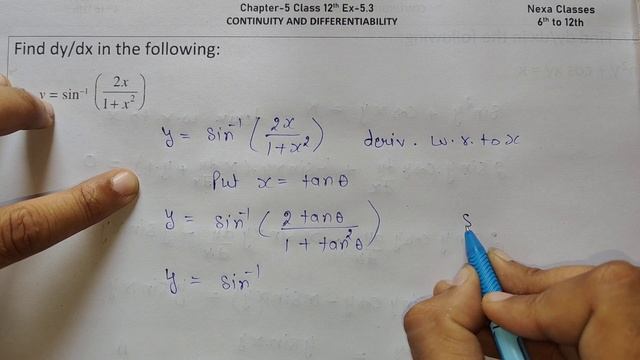 Chapter-5 Class 12th Ex-5.3
CONTINUITY AND DIFFERENTIABILITY
Nexa Classes
6th to 12th
Find dy/dx in the following:
y = sin⁻¹ (2x / 1 + x²)
y = sin⁻¹ (2x / 1 + x²) deriv. w.r. to x
Put x = tanθ
y = sin⁻¹ (2 tanθ / 1 + tan²θ)
S
y = sin⁻¹